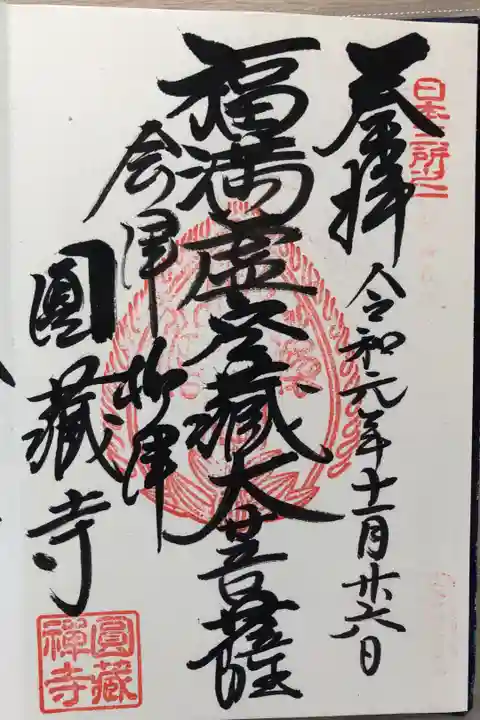 日本三所之一
奉拝
令和元年十一月廿六日
福満虚空藏大菩薩
会津柳津
圓藏寺
圓藏禅寺